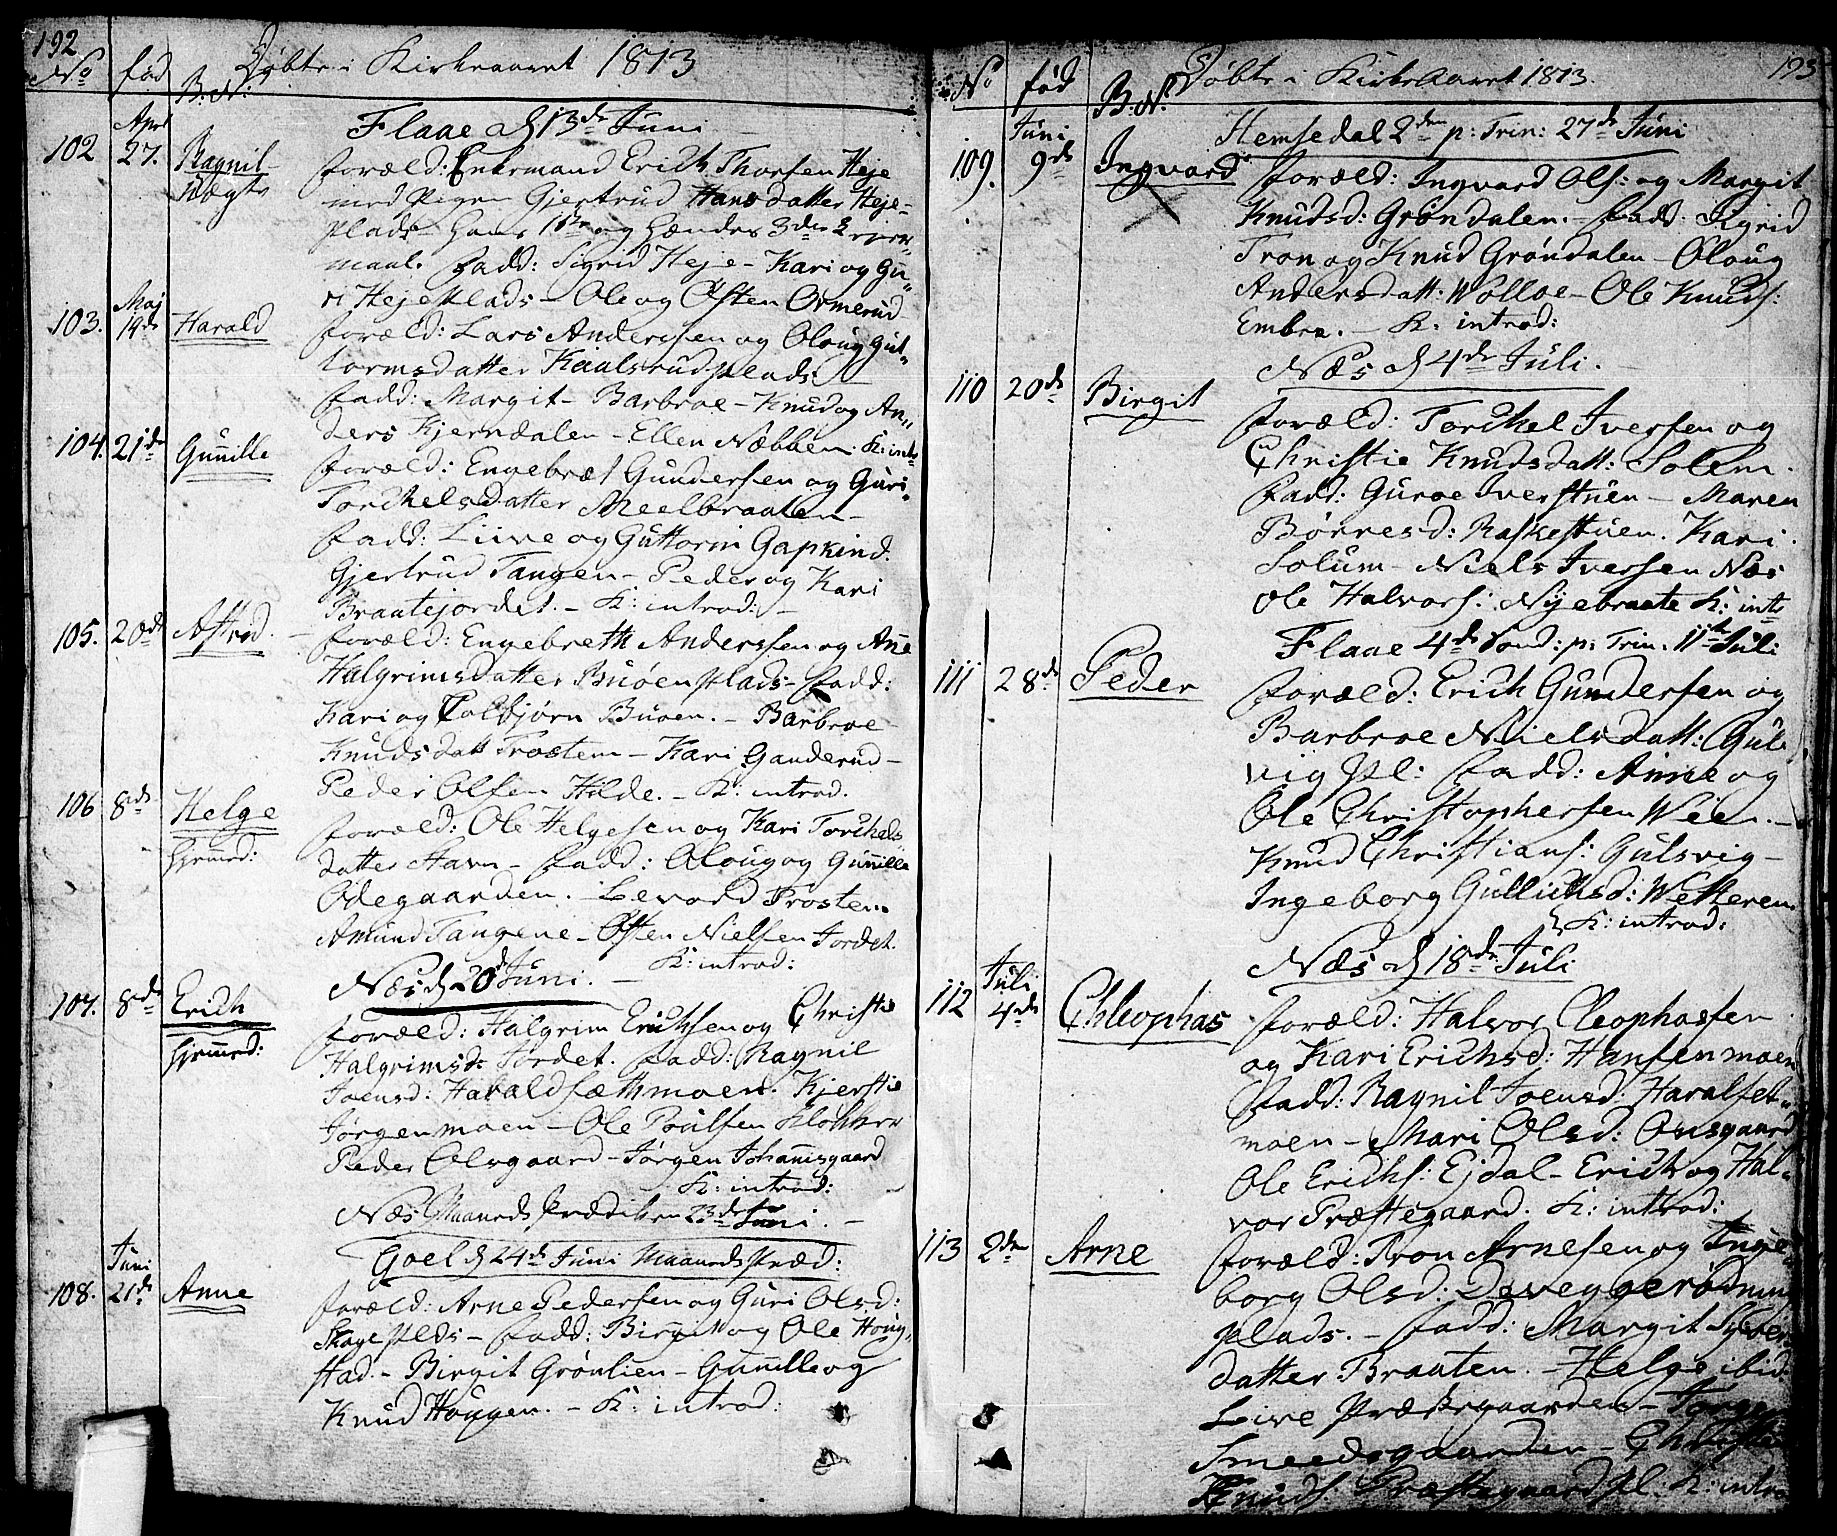 192
Døbte i Kirkeaaret 1813
No
fød
B: N:
Flaae d 13de Juni
102
Apr
27.
Ragnil
uægte
foræld: Enkemand Erich Thorsen Heje
med Pigen Gjertrud Hansdatter Heje-
plads hans 1ste og hendes 3die Lejer-
maal. fadd: Sigrid Heje - Kari og Gu-
ri Hejeplads - Ole og Østen Ormerud
103.
Maj
19de
Harald
foræld: Lars Anderssen og Oloug Gut-
tormsdatter Kaalsrudplads
fadd: Margit - Barbroe - Knud og An-
ders Kjerndalen - Ellen Næbben. K: intr
104.
21de
Gunille
foræld: Engebræt Gundersen og Guri
Torchelsdatter Meelbraaten -
fadd: Liive og Guttorm Gapkind.
Gjertrud Tangen - Peder og Kari
Braatejordet. - K: introd: -
105.
20de
Astrid.
foræld: Engebreth Anderssen og Ane
Halgrimsdatter Buøen plads - fadd:
Kari og Tolbjørn Buøen. - Barbroe
Knudsdatt Trostem - Kari Ganderud -
Peder Olsen Hilde. - K: introd.
106
8de
Helge
hjemed:
foræld: Ole Helgesen og Kari Torchels
datter Stavn - fadd: Oloug og Gunille
Ødegaarden. - Levord Trostem
Amund Tangene - Østen Nielsen Jordet.
K: introd:
Næs d 20de Juni. -
107.
8de
Erich
hjemed:
foræld: Halgrim Erichsen og Christie
Halgrimsd. Jordet. fadd: Ragnil
Joensd: Haraldsæthmoen. Kjerstie
Jørgenmoen - Ole Poulsen Klokker
Peder Olsgaard - Jørgen Johannisgaard
K: introd:
Næs Maaneds Prædiken 23de Juni. -
Goel d 24de Juni Maaneds Præd:
108.
Juni
21de
Anne
foræld: Arne Pedersen og Guri Olsd:
Skoge plds - fadd: Birgit og Ole Houg-
stad. - Birgit Grønlien - Gunille og
Knud Houggen. - K: introd:
193
Døbte i Kirkeaaret 1813.
No
fød
B. N.
Hemsedal 2den p: Trin: 27de Juni
109.
Juni
9de
Ingvard
foræld: Ingvard Ols: og Margit
Knudsd: Grøndalen. - fadd: Sigrid
Trøn og Knud Grøndalen - Oloug
Andersdatt: Wolloe - Ole Knuds:
Embre. - K: introd:
Næs d 4de Juli. -
110
20de
Birgit
foræld: Torchel Iversen og
Christie Knudsdatt: Solem.
fadd: Guroe Iverstuen - Maren
Børresd: Raskestuen. Kari
Solum - Niels Iversen Næs
Ole Halvors: Nyebraate K: intr
Flaae 4de Sønd: p: Trin: 11te Juli
111
28de
Peder
foræld: Erich Gundersen og
Barbroe Nielsdatt: Guls
vig Pl: fadd: Anne og
Ole Christophersen Wien. -
Knud Christians: Gulsvig -
Ingeborg Gullichsd: Wetteren
K: introd:
Næs d 18de Juli
112
Juli
4de
Chleophas
foræld: Halvor Cleophassen
og Kari Erichsd: Hansenmoen
fadd: Ragnil Joensd: Haralset-
moen - Mari Olsd: Onsgaard
Ole Erichs: Ejdal - Erich og Hal-
vor Præstegaard. K: introd:
113
2de
Arne
foræld: Tron Arnesen og Inge
borg Olsd: Deveggerødning
plads. - fadd: Margit Syver
datter Braaten. - Helge ibid
Live Præstegaarden - Jørgen
Smeedsgaarden - Christian
Knuds. Præstegaards pl. K: intro